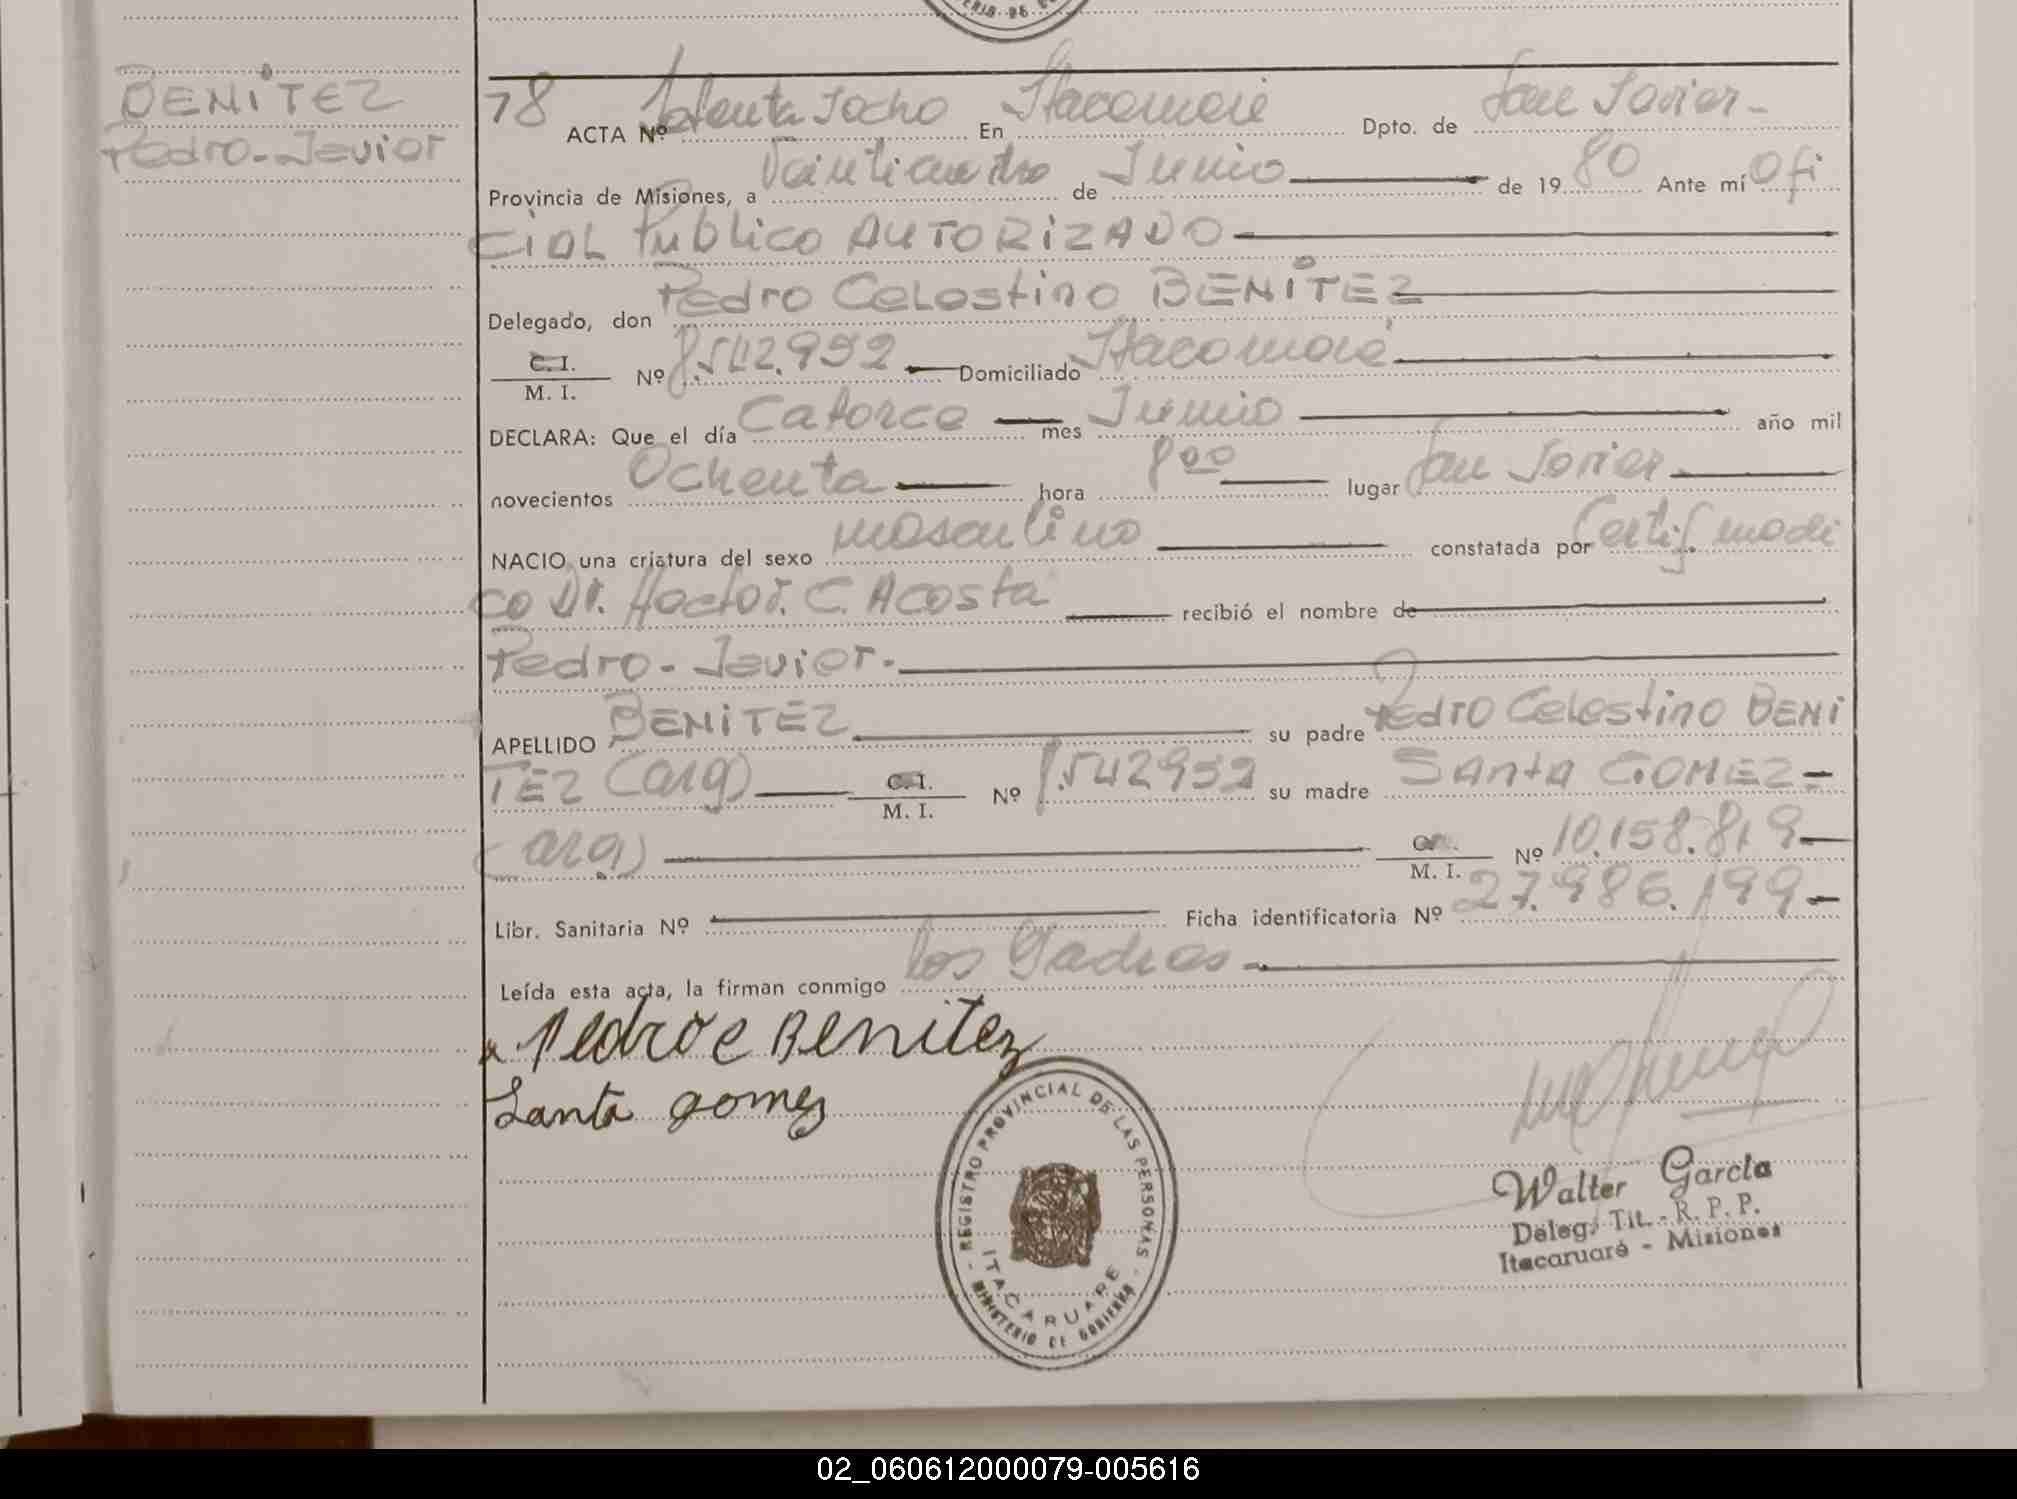 BENITEZ
Pedro-Javier
78 ACTA Nº Setenta Iocho En Itacaruaré Dpto. de San Javier-
Provincia de Misiones, a Veinticuatro de Junio de 1980 Ante mí Ofi
cial Publico AUTORIZADO
Delegado, don Pedro Celestino BENITEZ
C. I.
M. I. Nº 8.542.992 Domiciliado Itacaruaré
DECLARA: Que el día Catorce mes Junio año mil
novecientos Ochenta hora 8 00 lugar San Javier
NACIO una criatura del sexo masculino constatada por Certif. medi
co Dr. Hector. C. Acosta recibió el nombre de
Pedro-Javier.
APELLIDO BENITEZ su padre Pedro Celestino BENI
TEZ (arg) C. I. M. I. Nº 8.542992 su madre Santa GOMEZ=
(arg) M. I. Nº 10.158.819
Libr. Sanitaria Nº Ficha identificatoria Nº 27.986.199-
Leída esta acta, la firman conmigo los Padres
Pedro c Benitez
Santa gomez
REGISTRO PROVINCIAL DE LAS PERSONAS
ITACARUARE
MINISTERIO DE GOBIERNO
Walter García
Deleg. Tit. - R. P. P.
Itacaruaré - Misiones
02_060612000079-005616